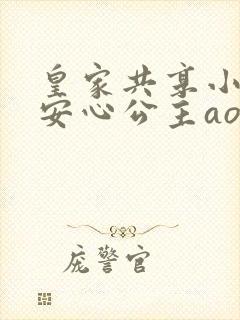 皇家共享小
安心公主ao
庞警官